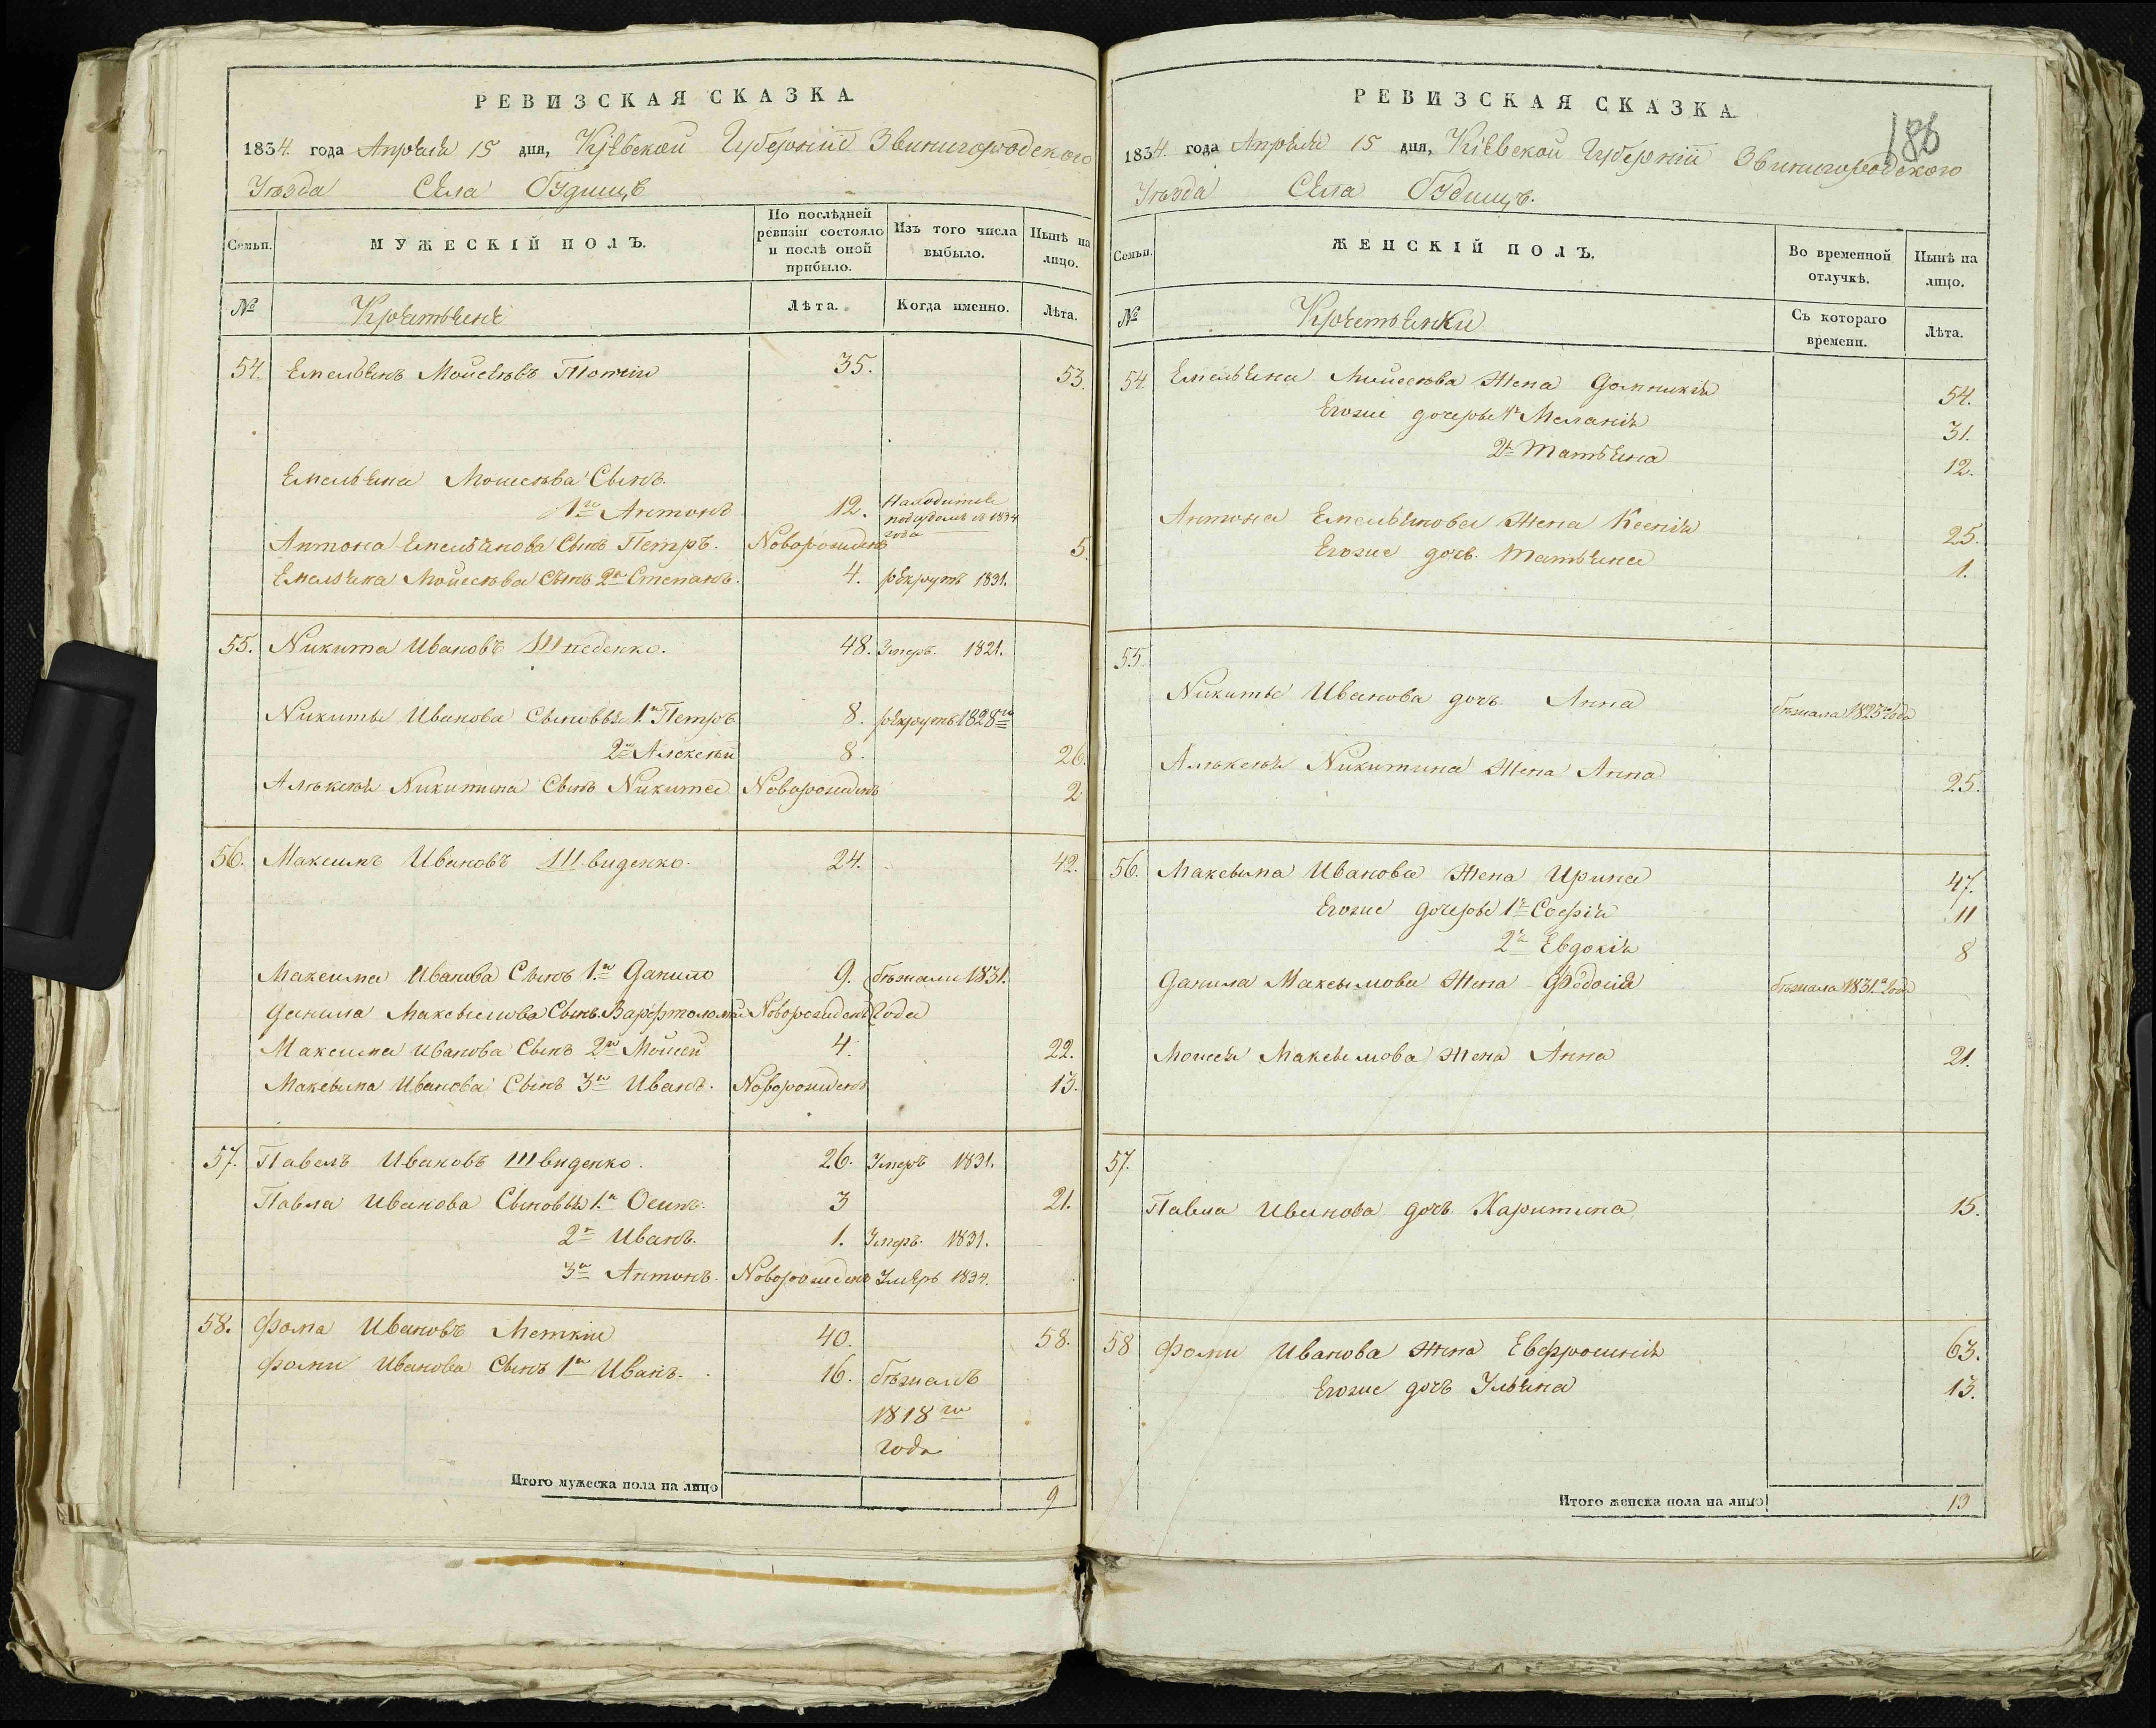 РЕВИЗСКАЯ СКАЗКА
1834. года Апреля 15 дня, Кіевской Губерніи Звинигородского
Уѣзда Села Будищъ
Семьи. МУЖЕСКІЙ ПОЛЪ. По послѣдней ревизіи состояло и послѣ оной прибыло. Изъ того числа выбыло. Нынѣ на лицо.
№ Крестьяне Лѣта. Когда именно. Лѣта.
54. Емельянъ Мойсѣевъ 35. 53.
Емельяна Моисѣева Сынъ
1й Антонъ 12. Находится подсудомъ съ 1834 года
Антона Емельянова Сынъ Петръ. Новорожденъ 5.
Емельяна Мойсеева Сынъ 2й Степанъ. 4. рекрутъ 1831.
55. Никита Ивановъ Шведенко. 48. Умеръ. 1821.
Никиты Иванова Сыновья 1й Петръ 8. рекрутъ 1828го
2й Алексѣй 8. 26.
Алѣксея Никитина Сынъ Никита Новорожденъ 2
56. Максимъ Ивановъ Швиденко. 24. 42.
Максима Иванова Сынъ 1й Данило 9. бѣжали 1831.
Данила Максымова Сынъ. Варфтоломей Новорожденъ Года
Максима Иванова Сынъ 2й Мойсей 4. 22.
Максыма Иванова Сынъ 3й Иванъ. Новорожденъ 13.
57. Павелъ Ивановъ Швиденко. 26. Умеръ 1831.
Павла Иванова Сыновья 1й Осипъ. 3 21.
2й Иванъ. 1. Умеръ. 1831.
3й Антонъ. Новорожденъ Умеръ 1834.
58. Фома Ивановъ Меткий 40. 58.
Фоми Иванова Сынъ 1й Иванъ. 16. бѣжалъ
1818го
года
Итого мужеска пола на лицо 9
РЕВИЗСКАЯ СКАЗКА
186
1834. года Апреля 15 дня, Кіевской Губерніи Звинигородского
Уѣзда Села Будищъ.
Семьи. ЖЕНСКІЙ ПОЛЪ. Во временной отлучкѣ. Нынѣ на лицо.
№ Крестьянки Съ котораго времени. Лѣта.
54. Емельяна Мойсеева Жена Домникія 54.
Егоже дочерье 1я Меланія 31.
2я Татьяна 12.
Антона Емельянова Жена Ксенія 25.
Егоже дочь. Татьяна 1.
55.
Никиты Иванова дочъ Анна бѣжала 1825го Года
Алѣксея Никитина Жена Анна 25.
56. Максыма Иванова Жена Ирина 47.
Егоже дочерье 1я Софія 11
2я Евдокія 8
Данила Максымова Жена Федосія бѣжала 1831го Года
Моисея Максымова Жена Анна 21.
57.
Павла Иванова дочъ Харитина 15.
58 Фоми Иванова Жена Евфросинія 63.
Егоже дочъ Ульяна 13.
Итого женска пола на лицо 13